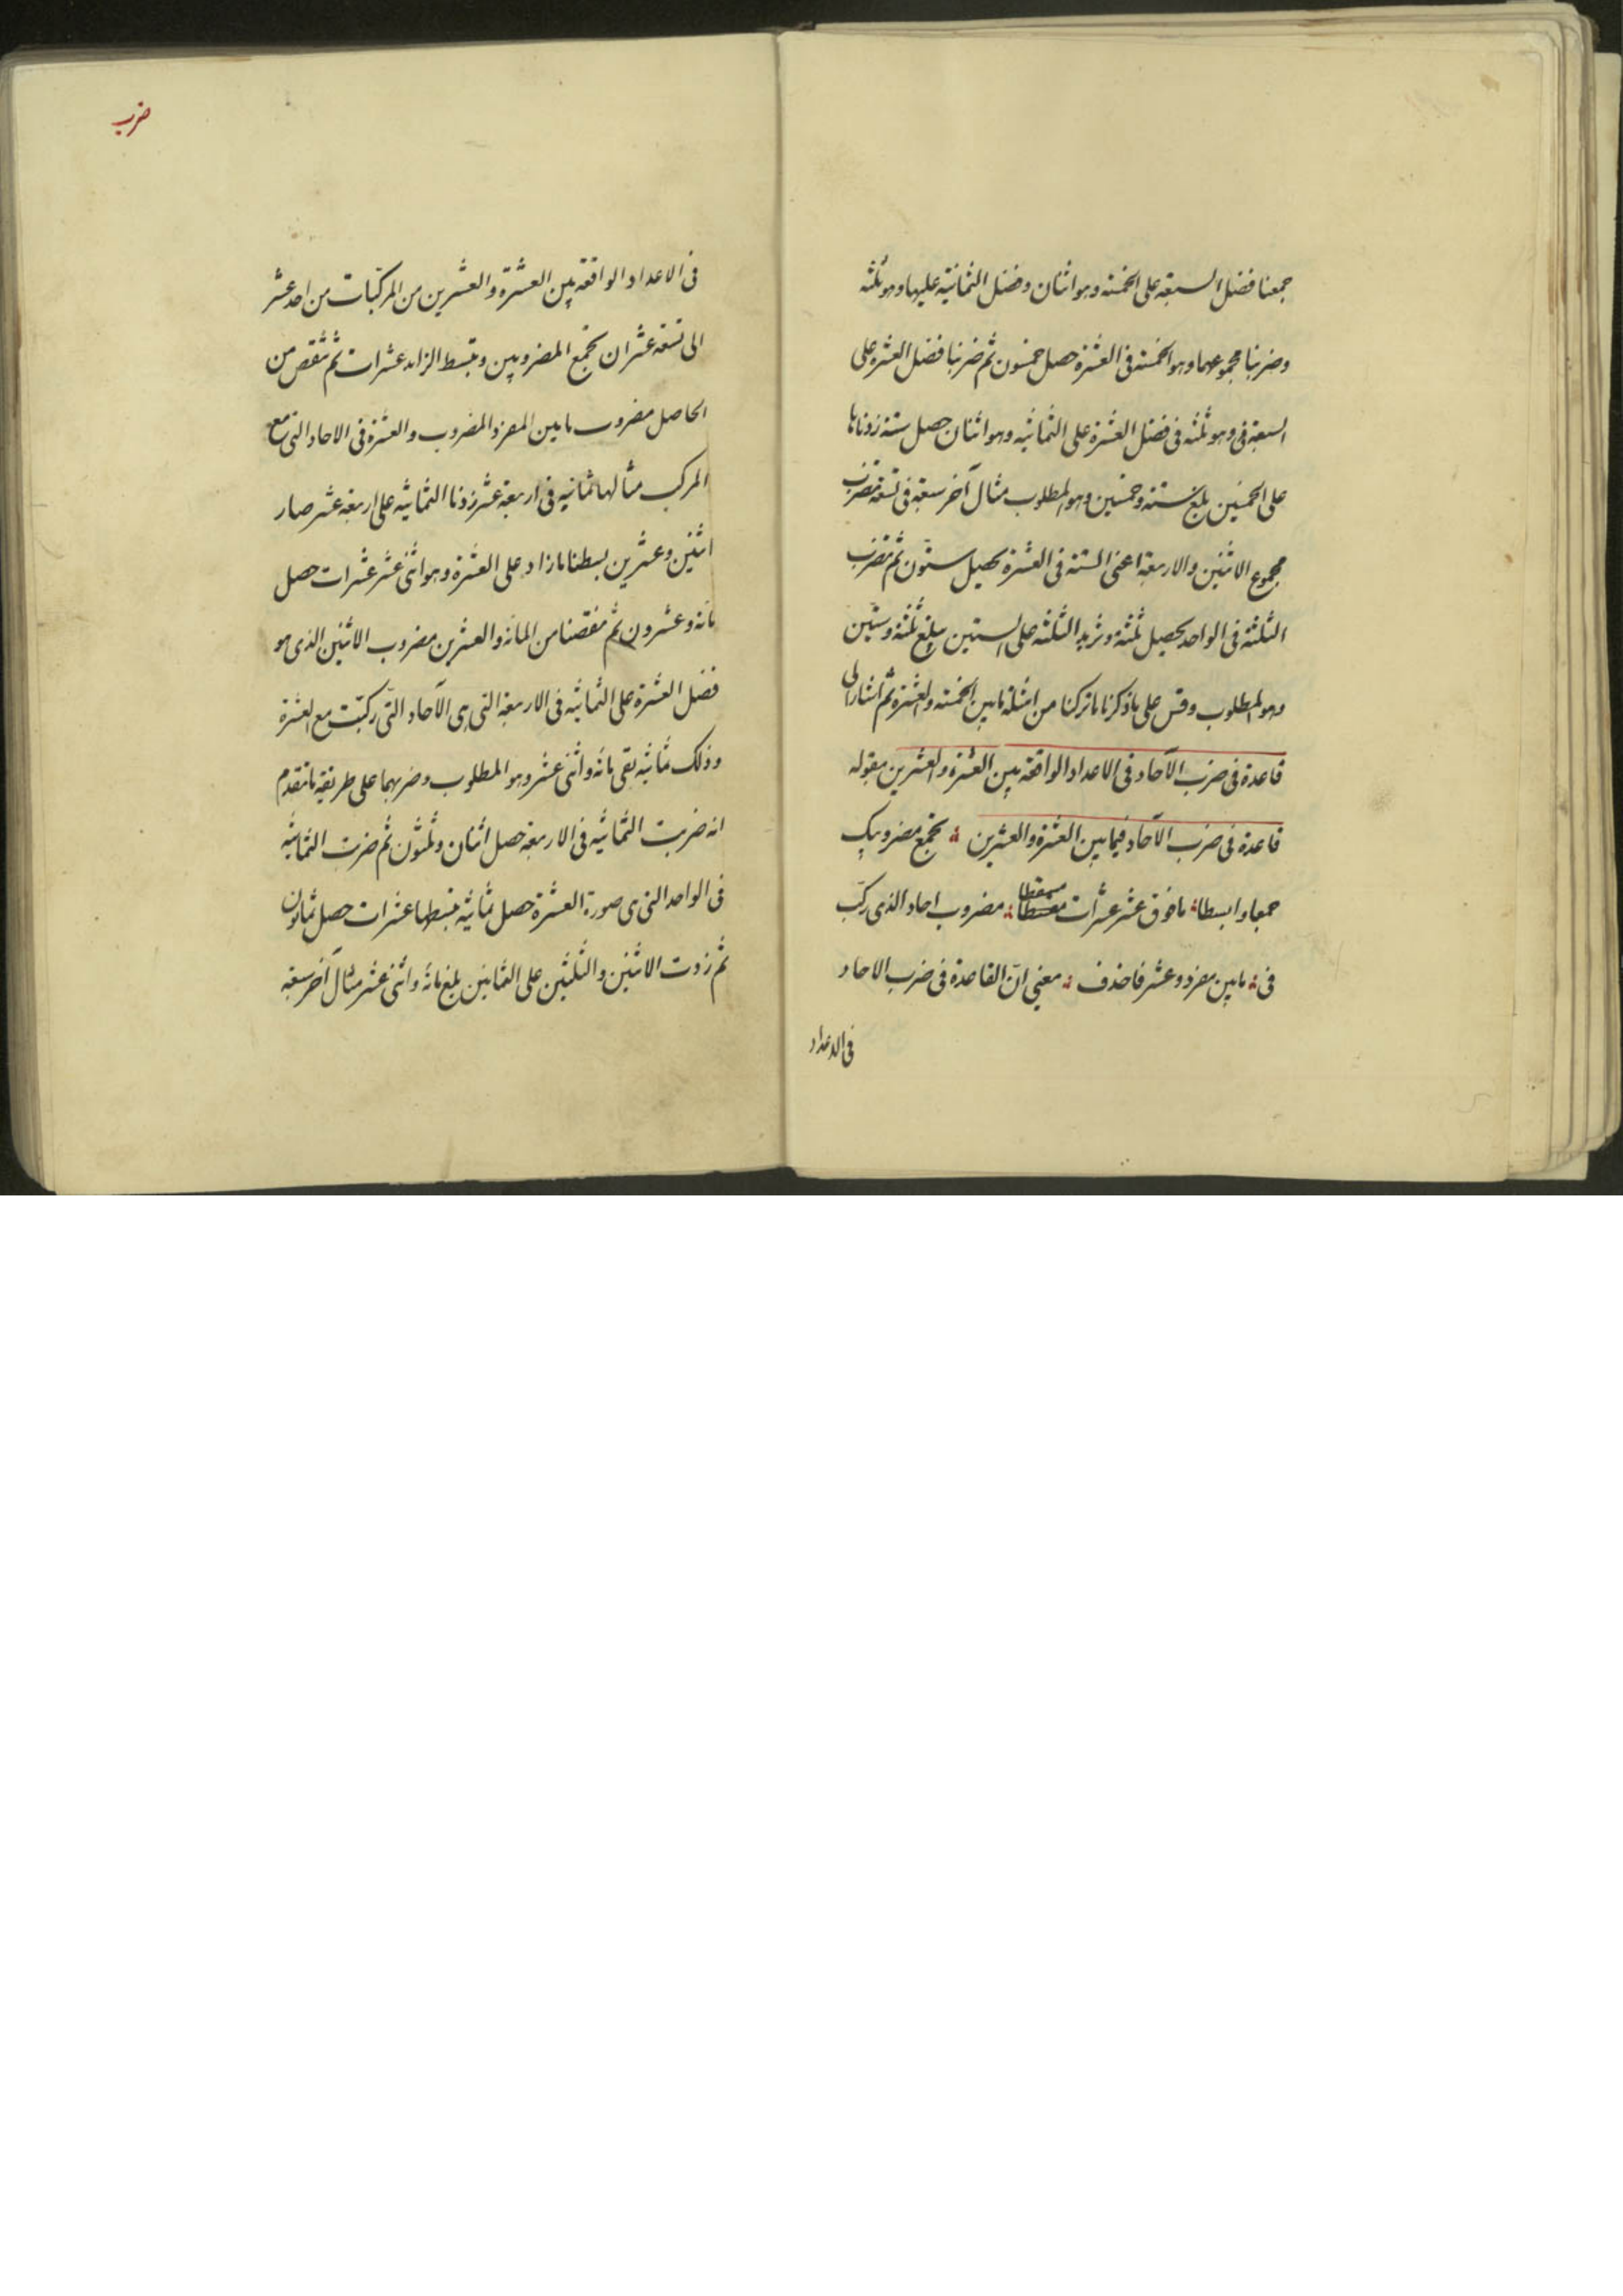 جمعنا فضل السبعة على الخمسة وهو اثنان وفضل الثمانية عليها وهو ثلثة
وضربنا مجموعهما وهو الخمسة فى العشرة حصل خمسون ثم ضربنا فضل العشرة على
السبعة فى وهو ثلثة فى فضل العشرة على الثمانيه وهو اثنان حصل ستة زدناها
على الخمسين بلغ ستة وخمسين وهو المطلوب مثال آخر سبعة فى تسعة تضرب
مجموع الاثنين والاربعة اعنى الستة فى العشرة يحصل ستّون ثم تضرب
الثلثة فى الواحد يحصل ثلثة ونزيد الثلثة على الستين يبلغ ثلثة وستّين
وهو المطلوب وقس على ما ذكرنا ما تركنا من امثلة ما بين الخمسة والعشرة ثم اشار الى
قاعدة فى ضرب الآحاد فى الاعداد الواقعة بين العشرة والعشرين بقوله
قاعدة فى ضرب الآحاد فيما بين العشرة والعشرين ؛ تجمع مضروبيك
جمعا وابسطا ؛ ما فوق عشر عشرات مسقطا ؛ مضروب احاد الذى ركّب
فى ؛ ما بين مفرد وعشر فاحذف ؛ معنى انّ القاعدة فى ضرب الاحاد
فى الاعداد
ضرب
فى الاعداد الواقعة بين العشرة والعشرين من المركّبات من احد عشر
الى تسعة عشر ان تجمع المضروبين وتبسط الزايد عشرات ثم تنقص من
الحاصل مضروب ما بين المفرد المضروب والعشرة فى الاحاد التى مع
المركب مثالها ثمانيه فى اربعة عشر زدنا الثمانيه على اربعة عشر صار
اثنين وعشرين بسطنا ما زاد على العشرة وهو اثنى عشر عشرات حصل
مائة وعشرون ثم نقصنا من المائة والعشرين مضروب الاثنين الذى هو
فضل العشرة على الثمانيه فى الاربعة التى هى الآحاد التّى ركبّت مع العشرة
وذلك ثمانيه بقى مائة واثنى عشر وهو المطلوب وضربهما على طريقة ما تقدم
انه ضربت الثمانيه فى الاربعة حصل اثنان وثلثون ثم ضربت الثمانية
فى الواحد التى هى صورة العشرة حصل ثمانيه نبسطها عشرات حصل ثمانون
ثم زدت الاثنين والثلثين على الثمانين بلغ مائة واثنى عشر مثال آخر سبعة